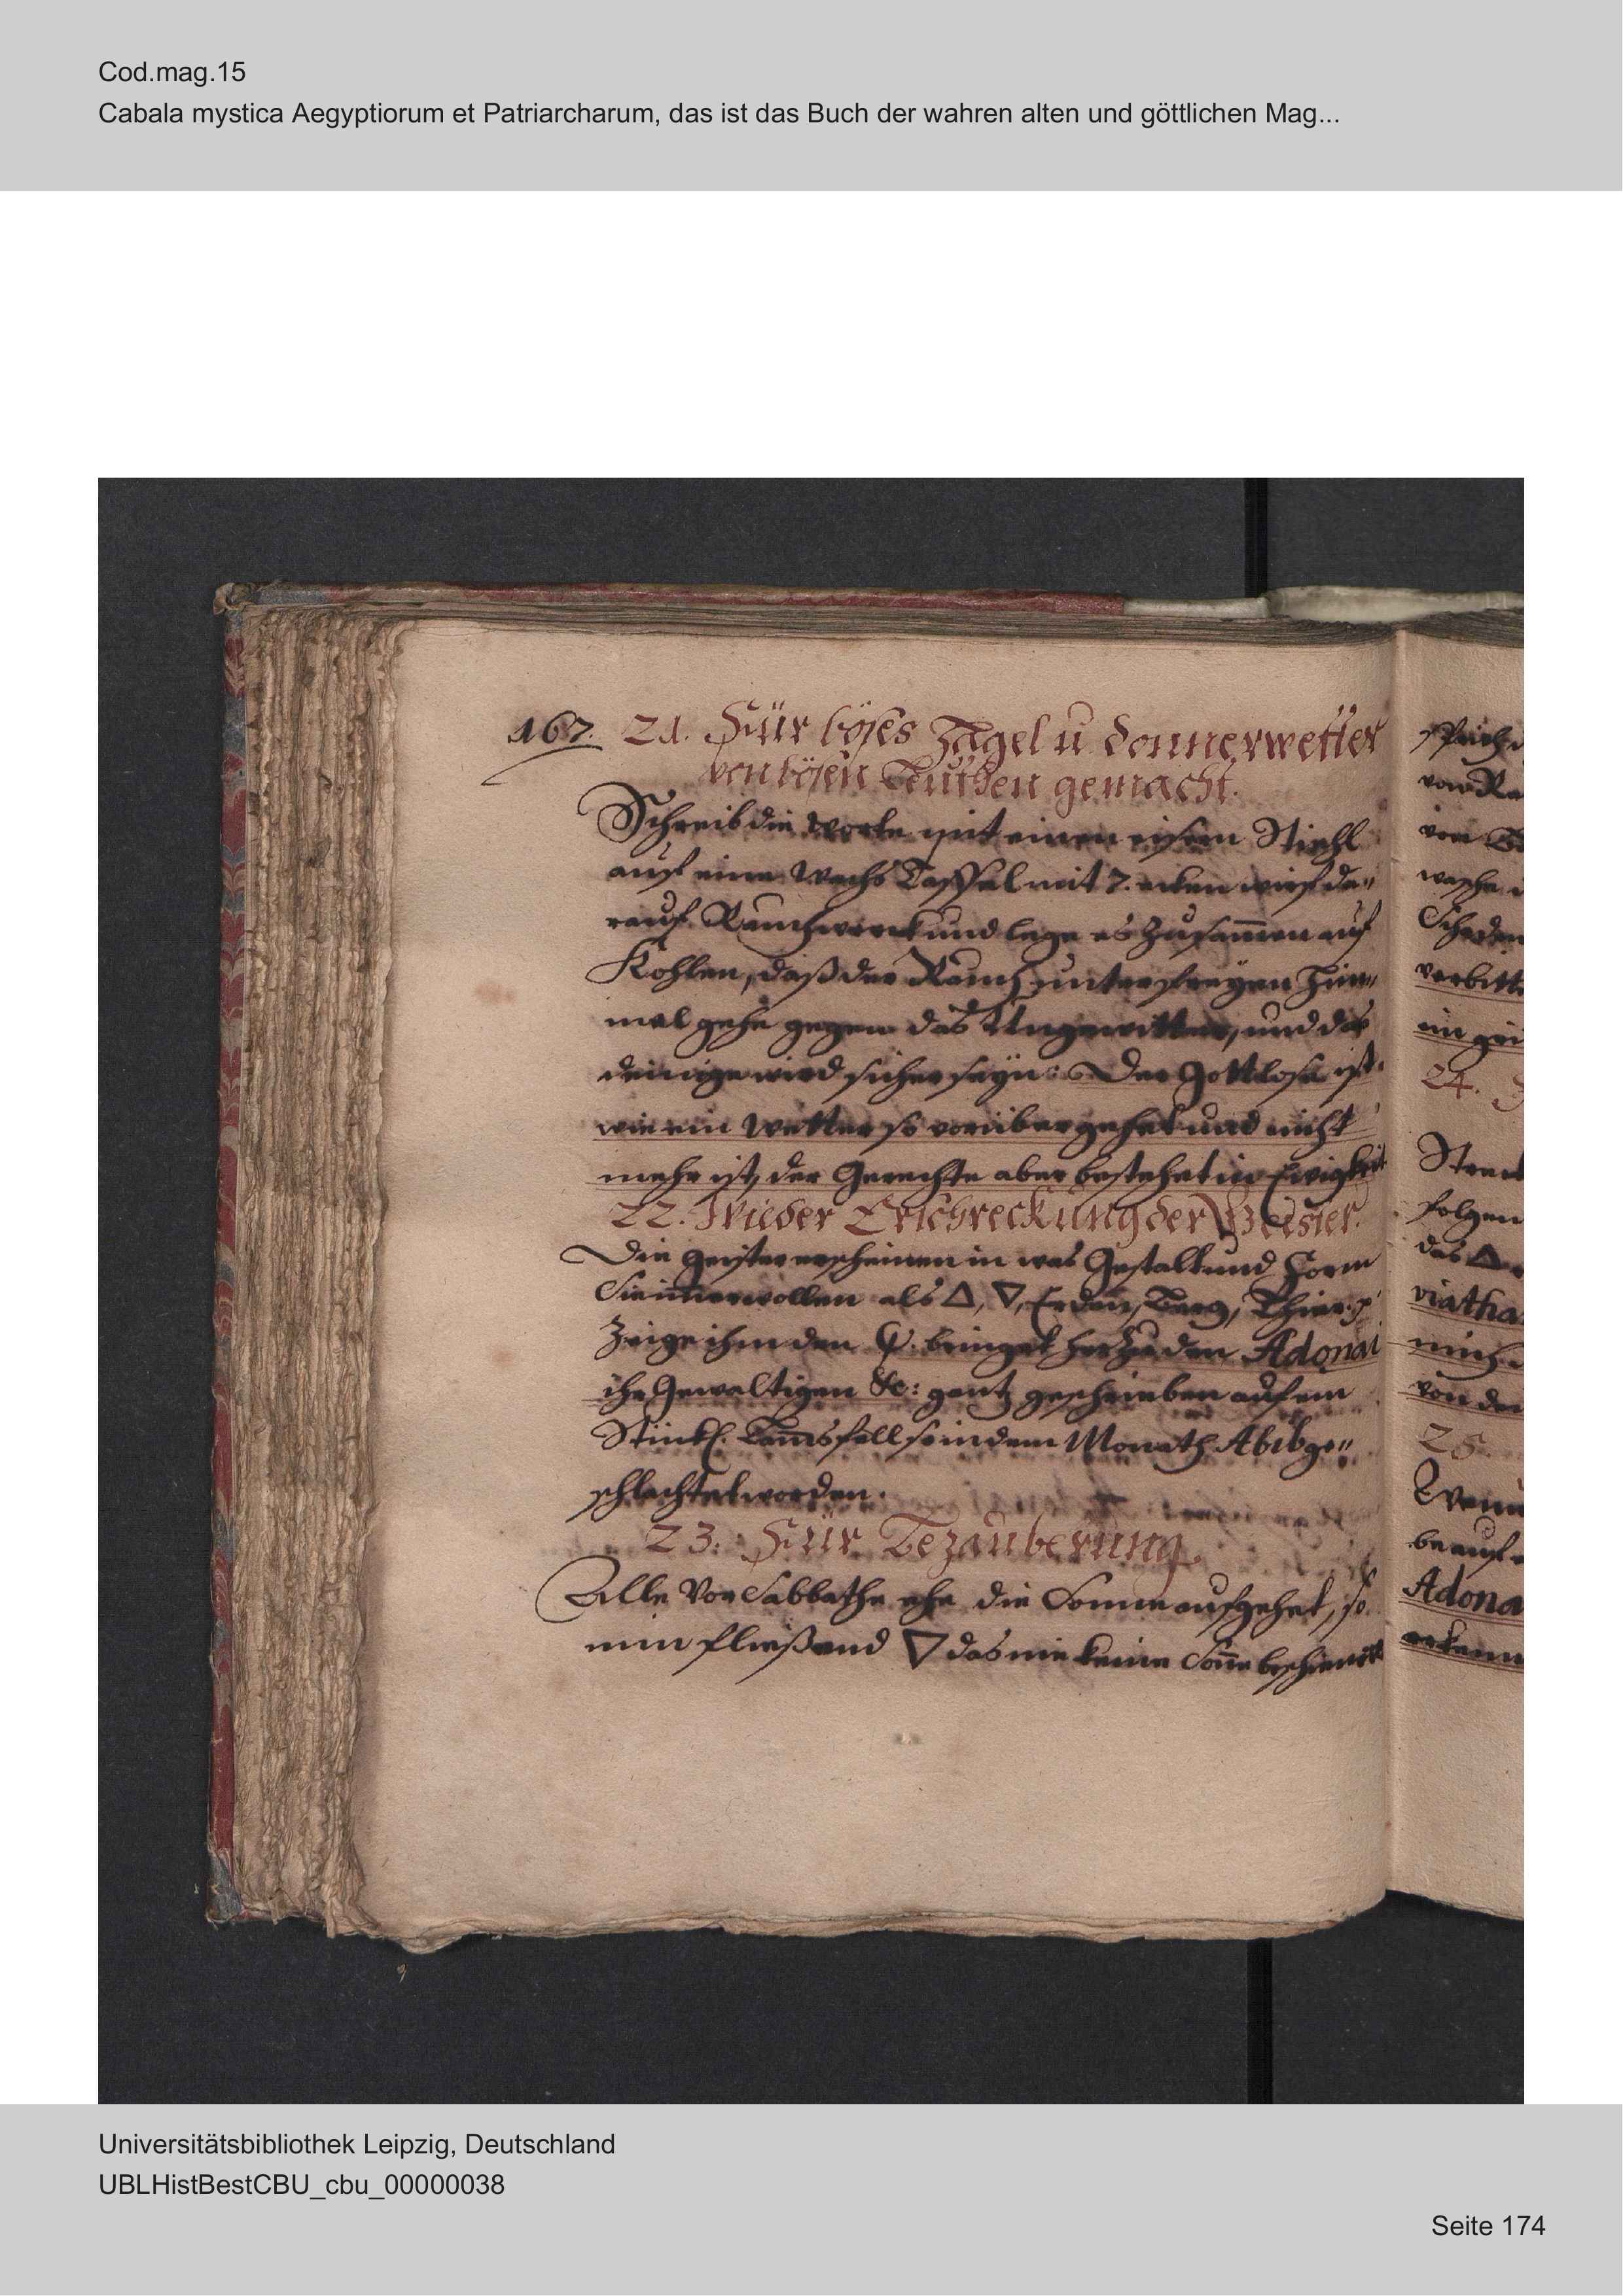 Cod.mag.15
Cabala mystica Aegyptiorum et Patriarcharum, das ist das Buch der wahren alten und göttlichen Mag...
167. 21. Für böses Hagel u donnerwetter
von bösen Leuthen gemacht.
Schreib die Worte mit einen eisern Stiehl
auf eine Wachs Taffel mit 7. ecken wirf da„
rauf Rauchwerck und lege es zusam̄en auf
Kohlen, daß der Rauch unter freyen Him„
mel gehe gegen das Ungewitter, und das
deinige wird sicher seyn: Der Gottlose ist
wie ein Wetter so vorüber gehet und nicht
mehr ist, der Gerechte aber bestehet in Ewigkeit
22. Wieder Erschreckung der Geister.
Die Geister erscheinen in was Gestalt und Form
Sie im̄er wollen als △, ▽, Erden, Berg, Thier
Zeige ihm den bringet herzu den Adonai
ihr Gewaltigen &c: gantz geschrieben auf ein
Stückl. Lam̄sfell so in dem Monath Abib ge„
schlachtet worden.
23. Für Bezauberung.
Alle Vor Sabbathe ehe die Sonne aufgehet, so
nim fließend ▽ das nie keine Son̄e beschienen
24.
das △
viatha
25.
Wenn
be auf
Adona
Universitätsbibliothek Leipzig, Deutschland
UBLHistBestCBU_cbu_00000038
Seite 174